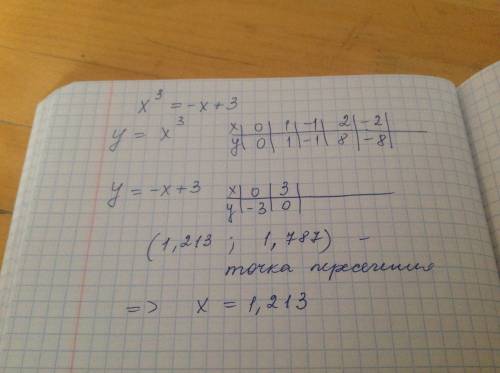 x³ = -x + 3
y = x³
x | 0 | 1 | -1 | 2 | -2 |
y | 0 | 1 | -1 | 8 | -8 |
y = -x + 3
x | 0 | 3 |
y | -3 | 0 |
(1,213 ; 1,787) -
точка пересечения
=> x = 1,213